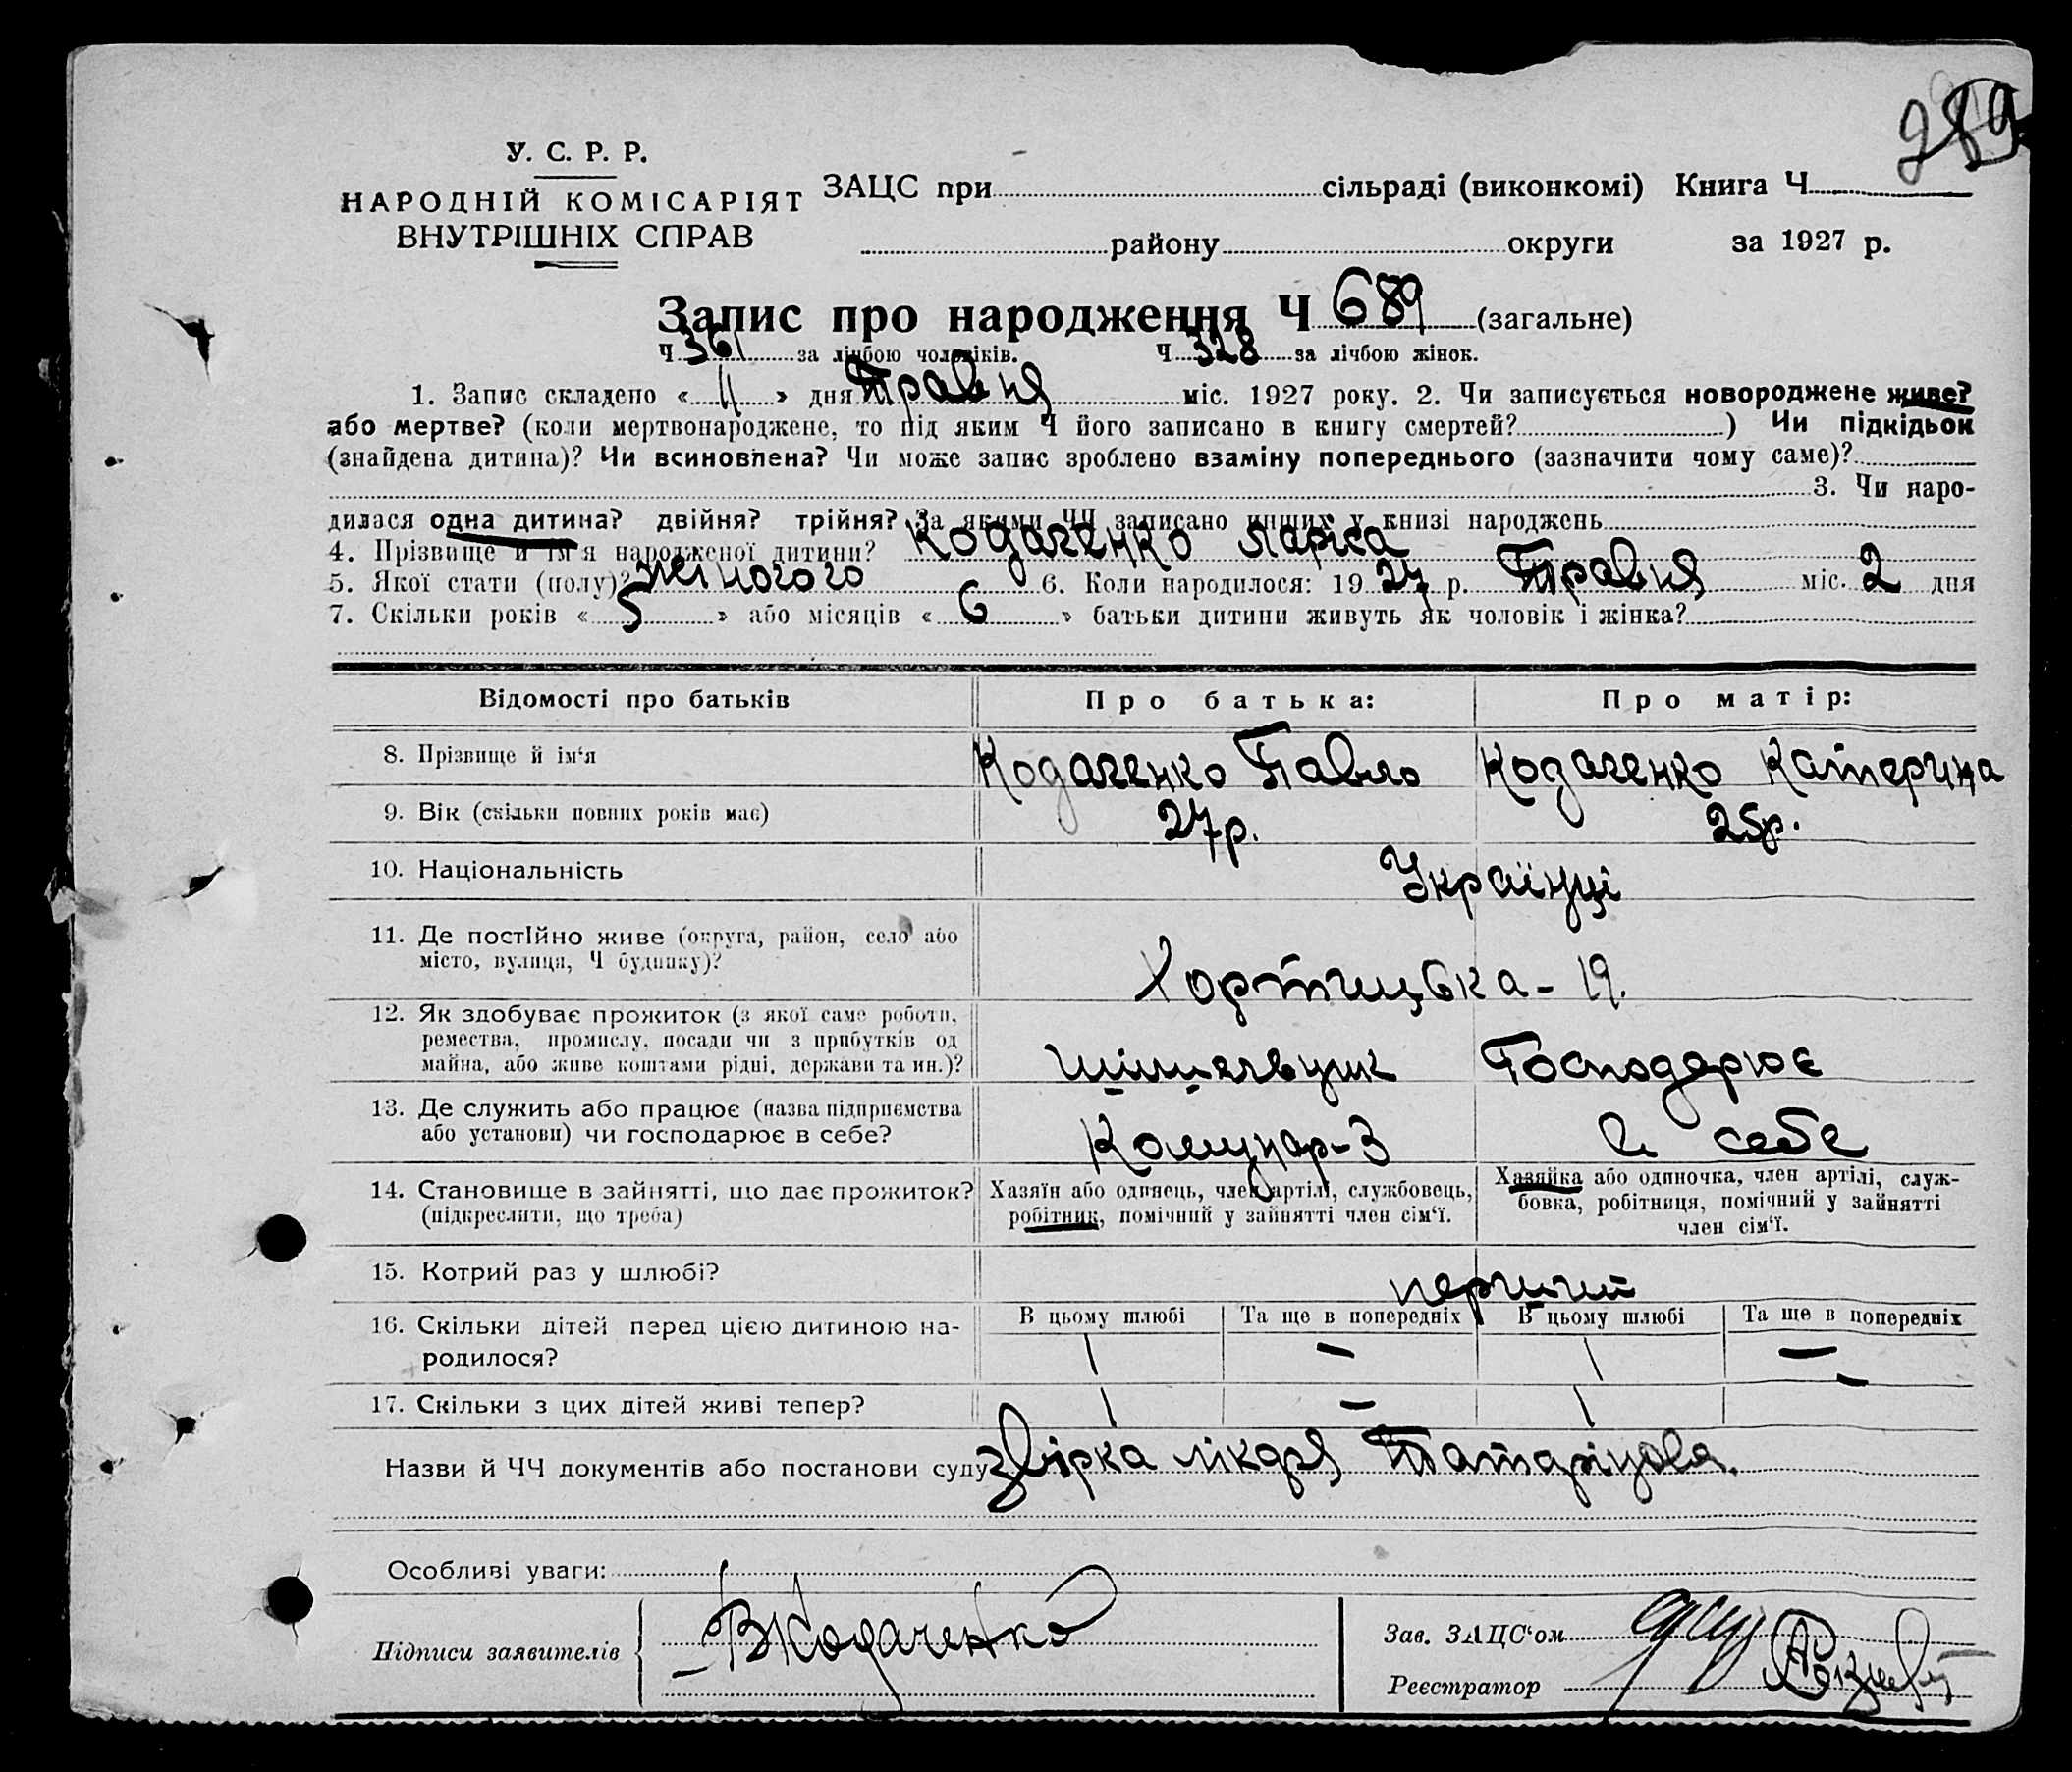 289
У. С. Р. Р.
НАРОДНІЙ КОМІСАРІЯТ
ВНУТРІШНІХ СПРАВ
ЗАЦС при сільраді (виконкомі) Книга Ч
району округи за 1927 р.
Запис про народження Ч 689 (загальне)
Ч 361 за лічбою чоловіків. Ч 328 за лічбою жінок.
1. Запис складено « 11 » дня Травня міс. 1927 року. 2. Чи записується новороджене живе?
або мертве? (коли мертвонароджене, то під яким Ч його записано в книгу смертей? ) Чи підкідьок
(знайдена дитина)? Чи всиновлена? Чи може запис зроблено взаміну попереднього (зазначити чому саме)?
3. Чи наро-
дилася одна дитина? двійня? трійня? За якими ЧЧ записано инших у книзі народжень
4. Прізвище й ім'я народженої дитини? Кодаченко Ларіса
5. Якої стати (полу)? жіночого 6. Коли народилося: 1927 р. Травня міс. 2 дня
7. Скільки років « 5 » або місяців « 6 » батьки дитини живуть як чоловік і жінка?
Відомості про батьків Про батька: Про матір:
8. Прізвище й ім'я Кодаченко Павло Кодаченко Катерина
9. Вік (скільки повних років має) 27р. 25р.
10. Національність Українці
11. Де постійно живе (округа, район, село або
місто, вулиця, Ч будинку)? Хортицька - 19.
12. Як здобуває прожиток (з якої саме роботи,
ремества, промислу, посади чи з прибутків од
майна, або живе коштами рідні, держави та ин.)? Господарює
13. Де служить або працює (назва підприємства
або установи) чи господарює в себе? Комунар-3 в себе
14. Становище в зайнятті, що дає прожиток?
(підкреслити, що треба)
Хазяїн або одинець, член артілі, службовець,
робітник, помічний у зайнятті член сім'ї.
Хазяйка або одиночка, член артілі, служ-
бовка, робітниця, помічний у зайнятті
член сім'ї.
15. Котрий раз у шлюбі? перший
16. Скільки дітей перед цією дитиною на-
родилося?
В цьому шлюбі Та ще в попередніх В цьому шлюбі Та ще в попередніх
1 — 1 —
17. Скільки з цих дітей живі тепер? 1 — 1 —
Назви й ЧЧ документів або постанови суду лікаря
Особливі уваги:
Підписи заявителів Кодаченко
Зав. ЗАЦС'ом
Реєстратор